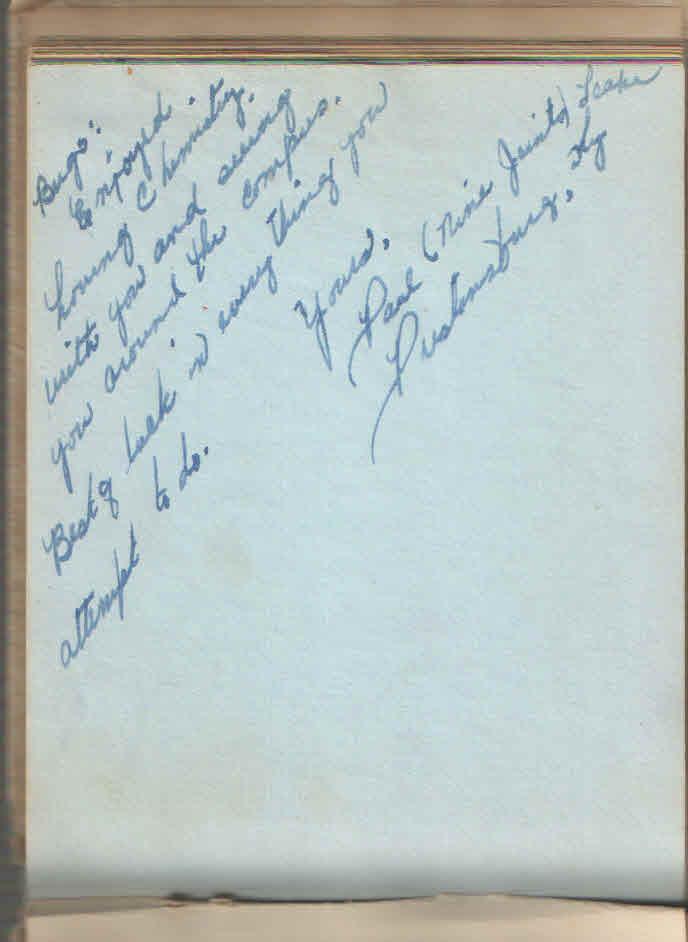 Bugs:
Enjoyed
having Chemistry
with you and seeing
you around the campus.
Best of luck in every thing you
attempt to do.
Yours,
Paul (Nine Joints) Leake
Prestonsburg, Ky